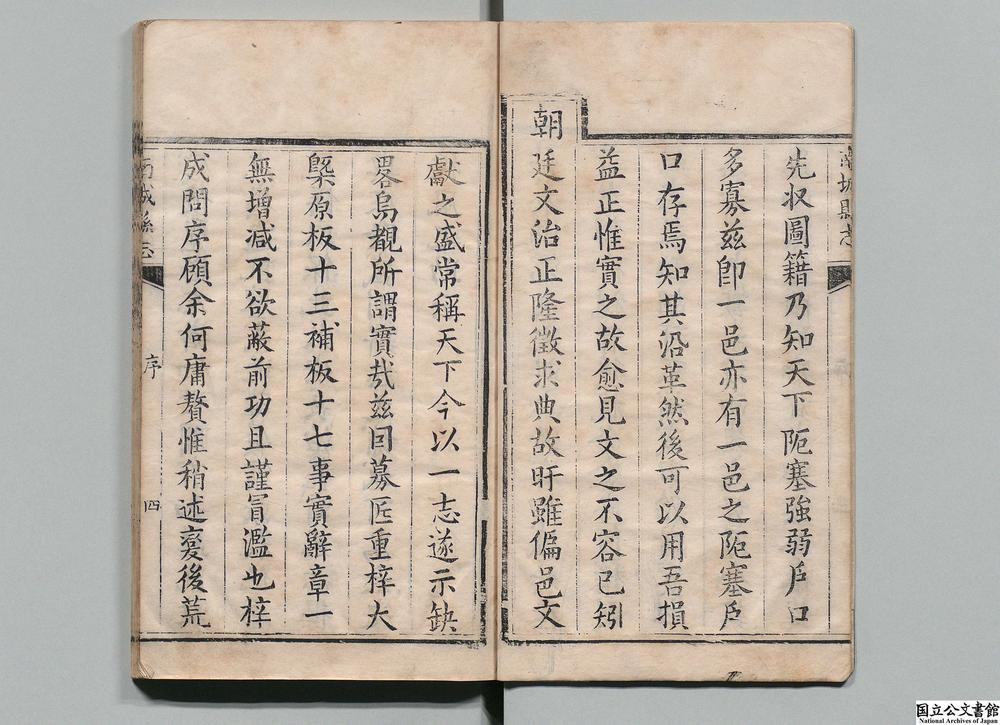 南城縣志
先収圖籍乃知天下阨塞強弱戶口
多寡兹即一邑亦有一邑之阨塞戶
口存焉知其沿革然後可以用吾損
益正惟實之故愈見文之不容已矧
朝廷文治正隆徵求典故旰雖偏邑文
獻之盛常稱天下今以一志遂示缺
畧烏覩所謂實哉兹囙募匠重梓大
槩原板十三補板十七事實辭章一
無增减不欲蔽前功且謹冐濫也梓
成問序顧余何庸贅惟稍述變後荒
南城縣志
序
四
国立公文書館
National Archives of Japan